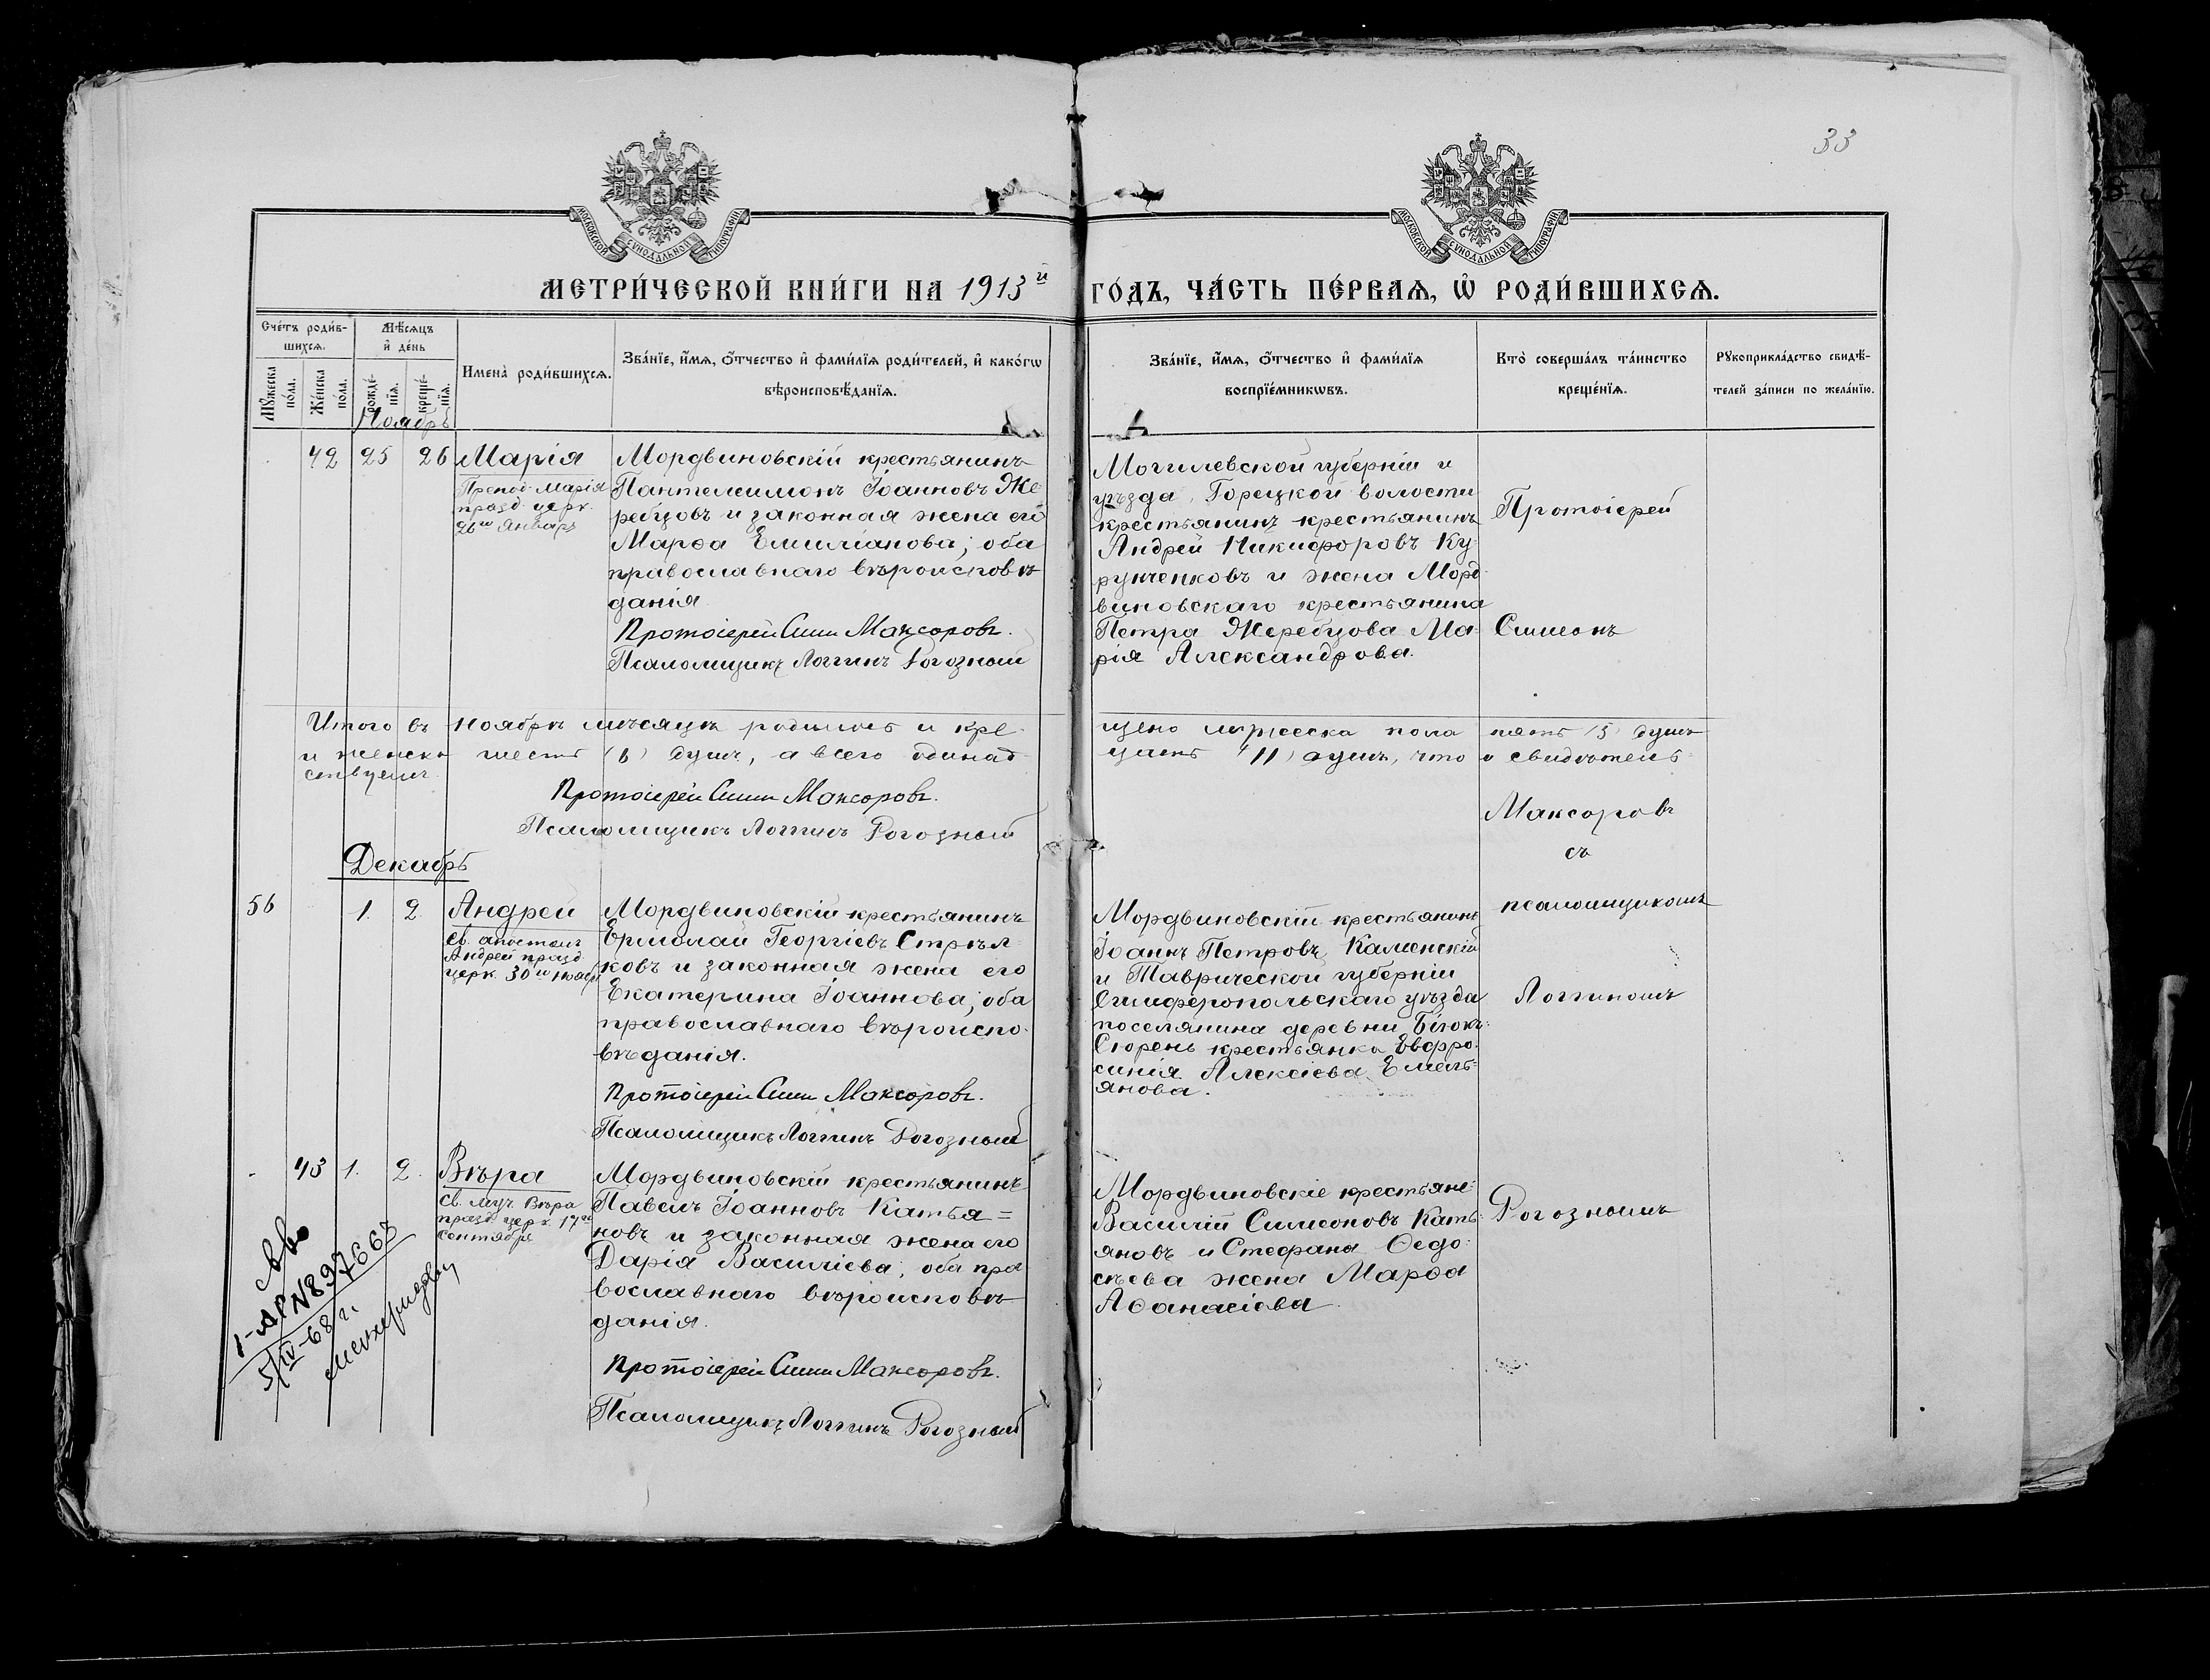 33
МОСКОВСКОЙ СѴНОДАЛЬНОЙ ТИПОГРАФІИ
МОСКОВСКОЙ СѴНОДАЛЬНОЙ ТИПОГРАФІИ
МЕТРИ́ЧЕСКОЙ КНИ́ГИ НА 1913й ГО́ДЪ, ЧА́СТЬ ПЕ́РВАѦ, Ѡ҆ РОДИ́ВШИХСѦ.
Сче́тъ роди́в-
шихсѧ.
Мꙋжеска по́ла.
Же́нска по́ла.
Мѣ́сѧцъ
и҆ де́нь
рожде́-
нїѧ.
креще́-
нїѧ.
Имена̀ роди́вшихсѧ.
Зва́нїе, и҆́мѧ, ѻ҆́тчество и҆ фами́лїѧ роди́телей, и҆ како́гѡ
вѣроисповѣ́данїѧ.
Зва́нїе, и҆́мѧ, ѻ҆́тчество и҆ фами́лїѧ
воспрїе́мникѡвъ.
Кто̀ соверша́лъ та́инство
креще́нїѧ.
Рꙋкоприкла́дство свидѣ́-
телей за́писи по жела́нїю.
Ноябрь
42 25 26 Марія
Препод. Марія
празд. церк.
26го Январь
Мордвиновскій крестьянинъ
Пантелеимонъ Іоанновъ Же-
ребцовъ и законная жена его
Марѳа Емиліанова; оба
православнаго вѣроисповѣ-
данія.
Протоіерей Симе Максоровъ.
Псаломщикъ Логгинъ Рогозный
Могилевской губерніи и
уѣзда, Горецкой волости
крестьянинъ крестьянинъ
Андрей Никифоровъ Ку-
рученковъ и жена Морд-
виновскаго крестьянина
Петра Жеребцова Ма-
рія Александрова.
Протоіерей
Симеонъ
Итого въ ноябрѣ мѣсяцѣ родилось и кре-
щено мужеска пола пять (5) душъ
и женска шесть (6) душъ, а всего одинад-
цать (11) душъ, что и свидѣтель-
ствуемъ.
Протоіерей Симе Максоровъ.
Псаломщикъ Логгинъ Рогозный
Максоровъ
съ
Декабрь
56 1. 2. Андрей
Св. апостолъ
Андрей празд.
церк. 30го Ноябр
Мордвиновскій крестьянинъ
Ермолай Георгіевъ Стрѣл-
ковъ и законная жена его
Екатерина Іоаннова; оба
православнаго вѣроиспо-
вѣданія.
Протоіерей Симе Максоровъ.
Псаломщикъ Логгинъ Рогозный
Мордвиновскій крестьянинъ
Іоаннъ Петровъ Каменскій
и Таврической губерніи
Симферопольскаго уѣзда
поселянина деревни Біюкъ-
Сюрень крестьянка Евфро-
синія Алексіева Емель-
янова.
псаломщикомъ
Логгиномъ
43 1. 2. Вѣра
Св. муч. Вѣра
празд. церк. 17го
сентября
Мордвиновскій крестьянинъ
Павелъ Іоанновъ Катья=
новъ и законная жена его
Дарія Василіева, оба пра-
вославнаго вѣроисповѣ-
данія.
Протоіерей Симе Максоровъ.
Псаломщикъ Логгинъ Рогозный
Мордвиновскіе крестьяне:
Василій Симеоновъ Кать-
яновъ и Стефана Ѳедо-
сѣева жена Марѳа
Аѳанасіева.
Рогознымъ
1-АР N897663
5/IV-68 г.